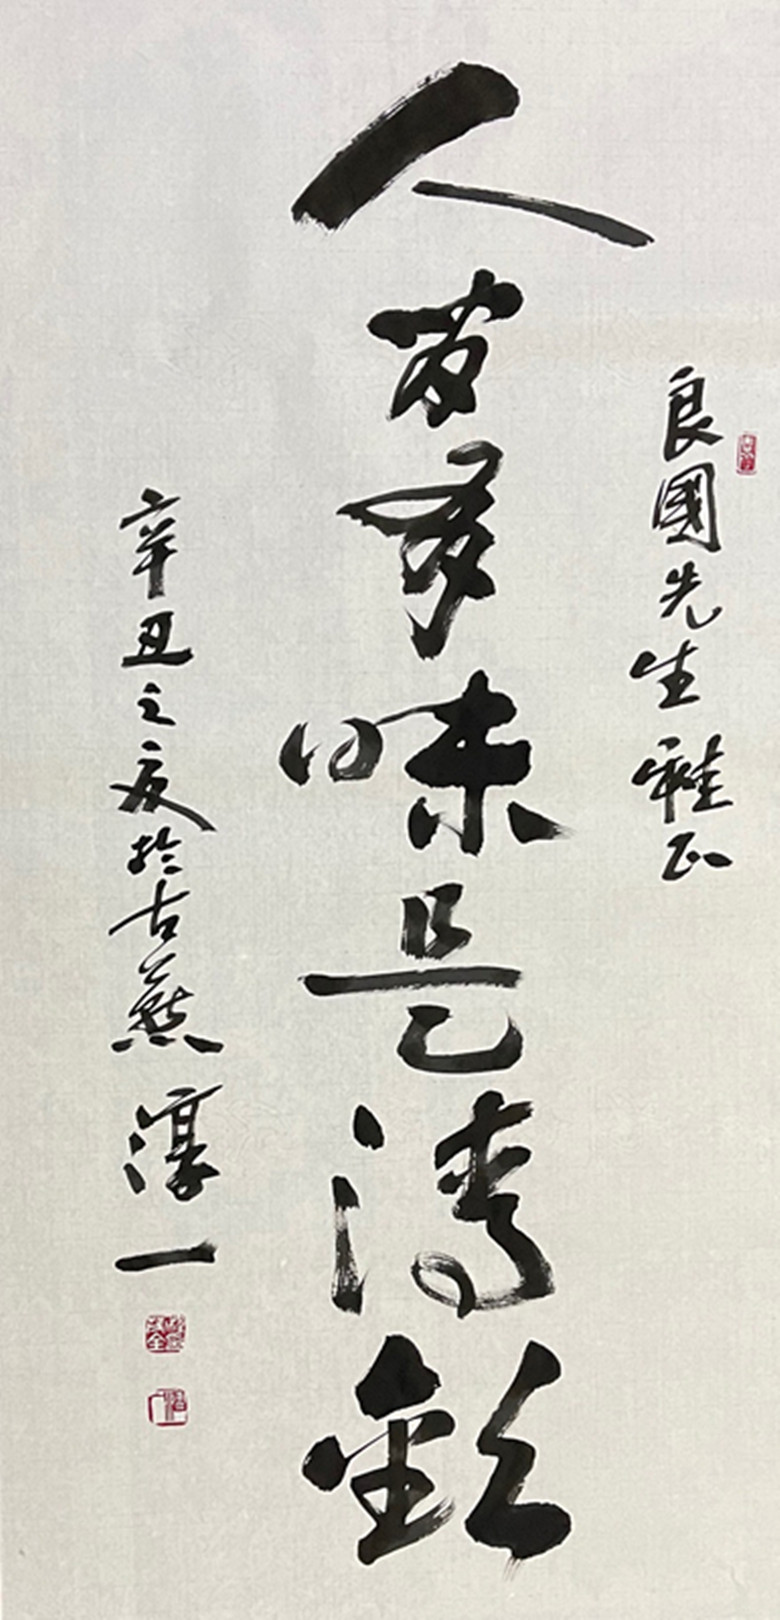 良國先生雅正
人間有味是清歡
辛丑之夏於古燕淳一